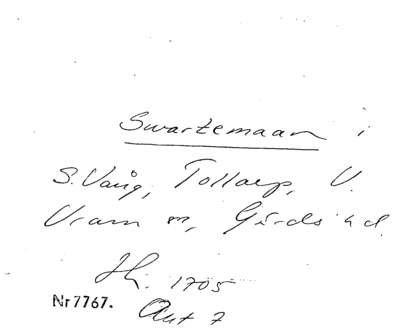 Swartemaan i
S. Vång, Tollarp, V.
Vram m, Gärds hd.
Jh. 1705
Nr 7767.
Aut 7